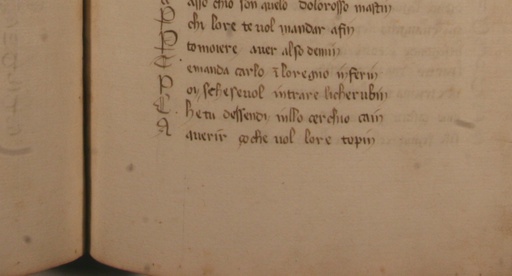 asso chio son quelo dolorosso mastin
P chi lore te vol mandar afin
P tomoiere auer also demin
E emanda carlo ī loregno inferin
P oi scheseuol intrare licherubin
C he tu dessendi nisso cerchio cain
A auerir çoche vol lore topin